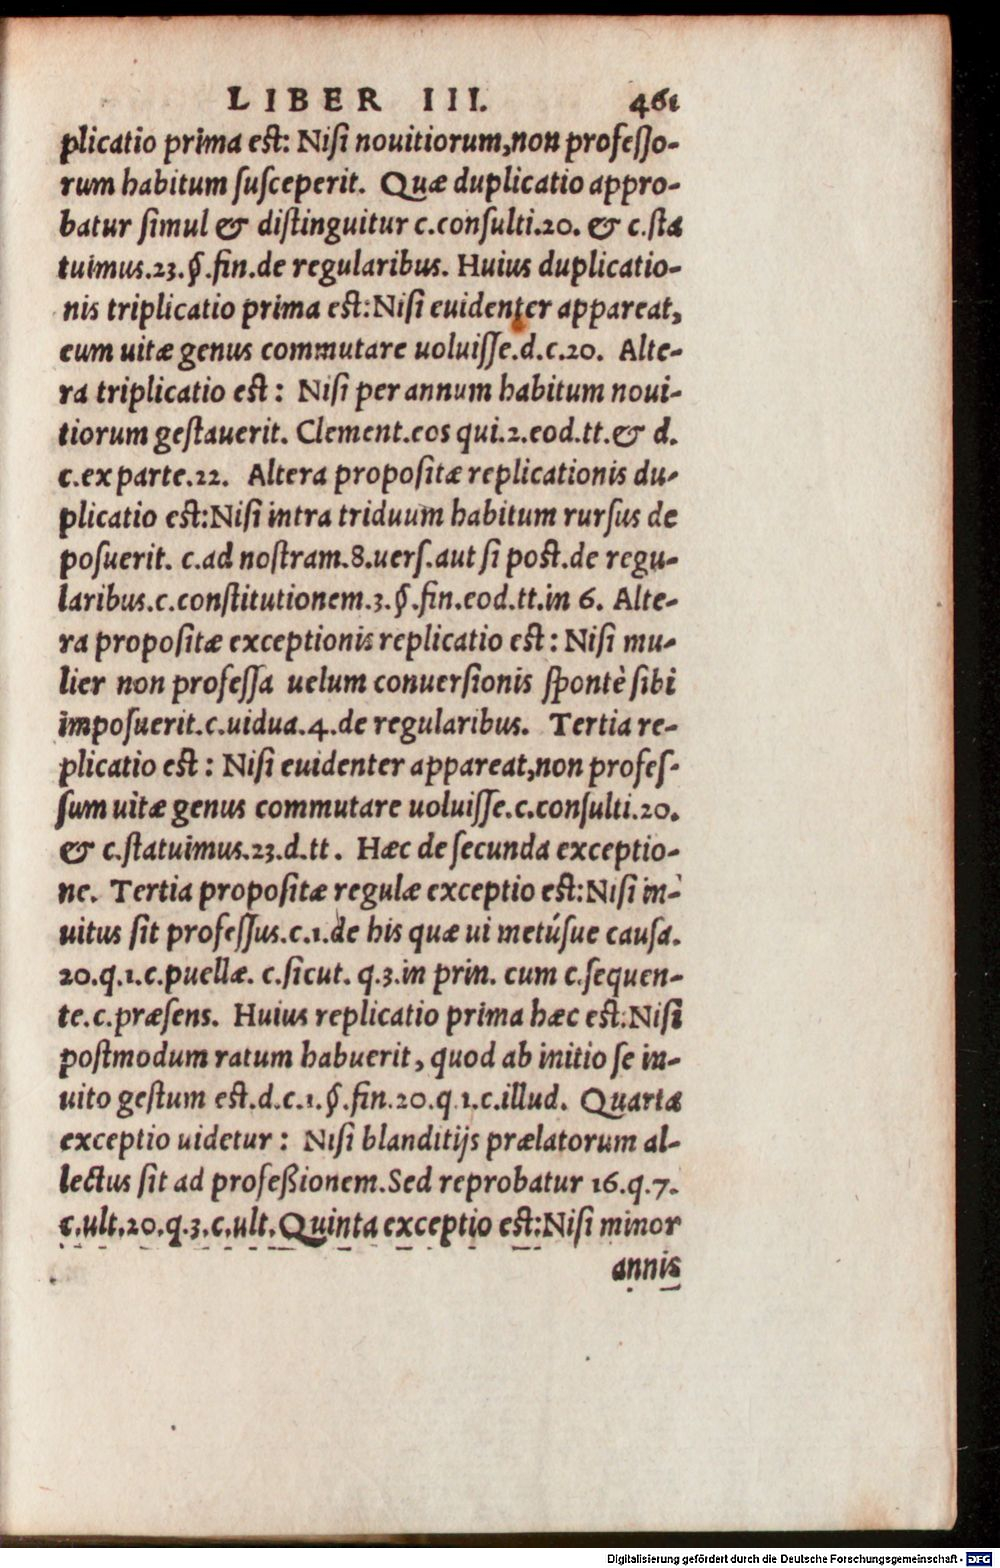 LIBER III. 461
plicatio prima est: Nisi nouitiorum,non professo-
rum habitum susceperit. Quæ duplicatio appro-
batur simul & distinguitur c.consulti.20. & c.sta
tuimus.23.§.fin.de regularibus. Huius duplicatio-
nis triplicatio prima est:Nisi euidenter appareat,
eum uitæ genus commutare uoluisse.d.c.20. Alte-
ra triplicatio est: Nisi per annum habitum noui-
tiorum gestauerit. Clement.eos qui.2.eod.tt.& d.
c.ex parte.22. Altera propositæ replicationis du-
plicatio est:Nisi intra triduum habitum rursus de
posuerit. c.ad nostram.8.uers.aut si post.de regu-
laribus.c.constitutionem.3.§.fin.eod.tt.in 6. Alte-
ra propositæ exceptionis replicatio est: Nisi mu-
lier non professa uelum conuersionis spontè sibi
imposuerit.c.uidua.4.de regularibus. Tertia re-
plicatio est: Nisi euidenter appareat,non profes-
sum uitæ genus commutare uoluisse.c.consulti.20.
& c.statuimus.23.d.tt. Hæc de secunda exceptio-
ne. Tertia propositæ regulæ exceptio est:Nisi in-
uitus sit professus.c.1.de his quæ ui metúsue causa.
20.q.1.c.puellæ. c.sicut. q.3.in prin. cum c.sequen-
te.c.præsens. Huius replicatio prima hæc est.Nisi
postmodum ratum habuerit, quod ab initio se in-
uito gestum est.d.c.1.§.fin.20.q.1.c.illud. Quarta
exceptio uidetur: Nisi blanditijs prælatorum al-
lectus sit ad profeßionem.Sed reprobatur 16.q.7.
c.ult.20.q.3.c.ult.Quinta exceptio est:Nisi minor
annis
Digitalisierung gefördert durch die Deutsche Forschungsgemeinschaft - DFG